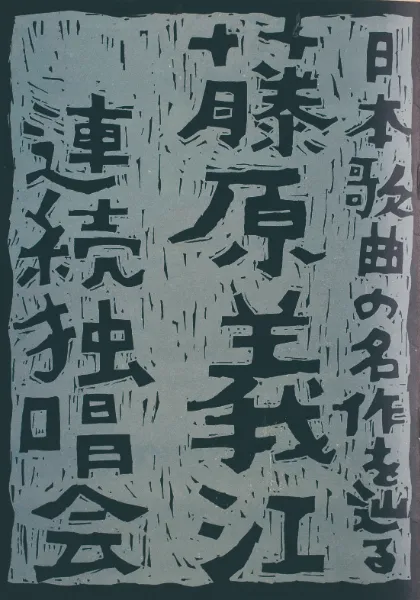 日本歌曲の名作を辿る
藤原義江
連続独唱会